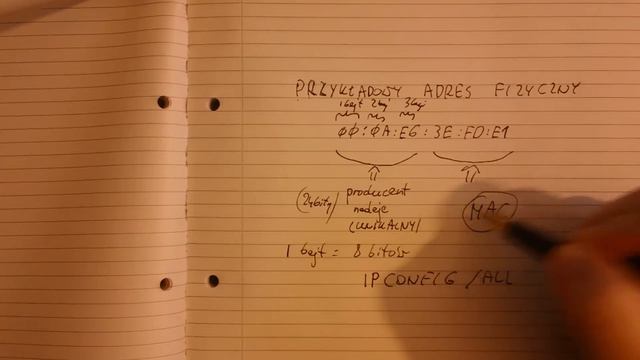 PRZYKŁADOWY ADRES FIZYCZNY
1bajt 2baj 3baj
00:0A:E6:3E:FD:E1
(24bity) producent
nadaje
(UNIKALNY)
MAC
1 bajt = 8 bitów
IPCONFIG /ALL